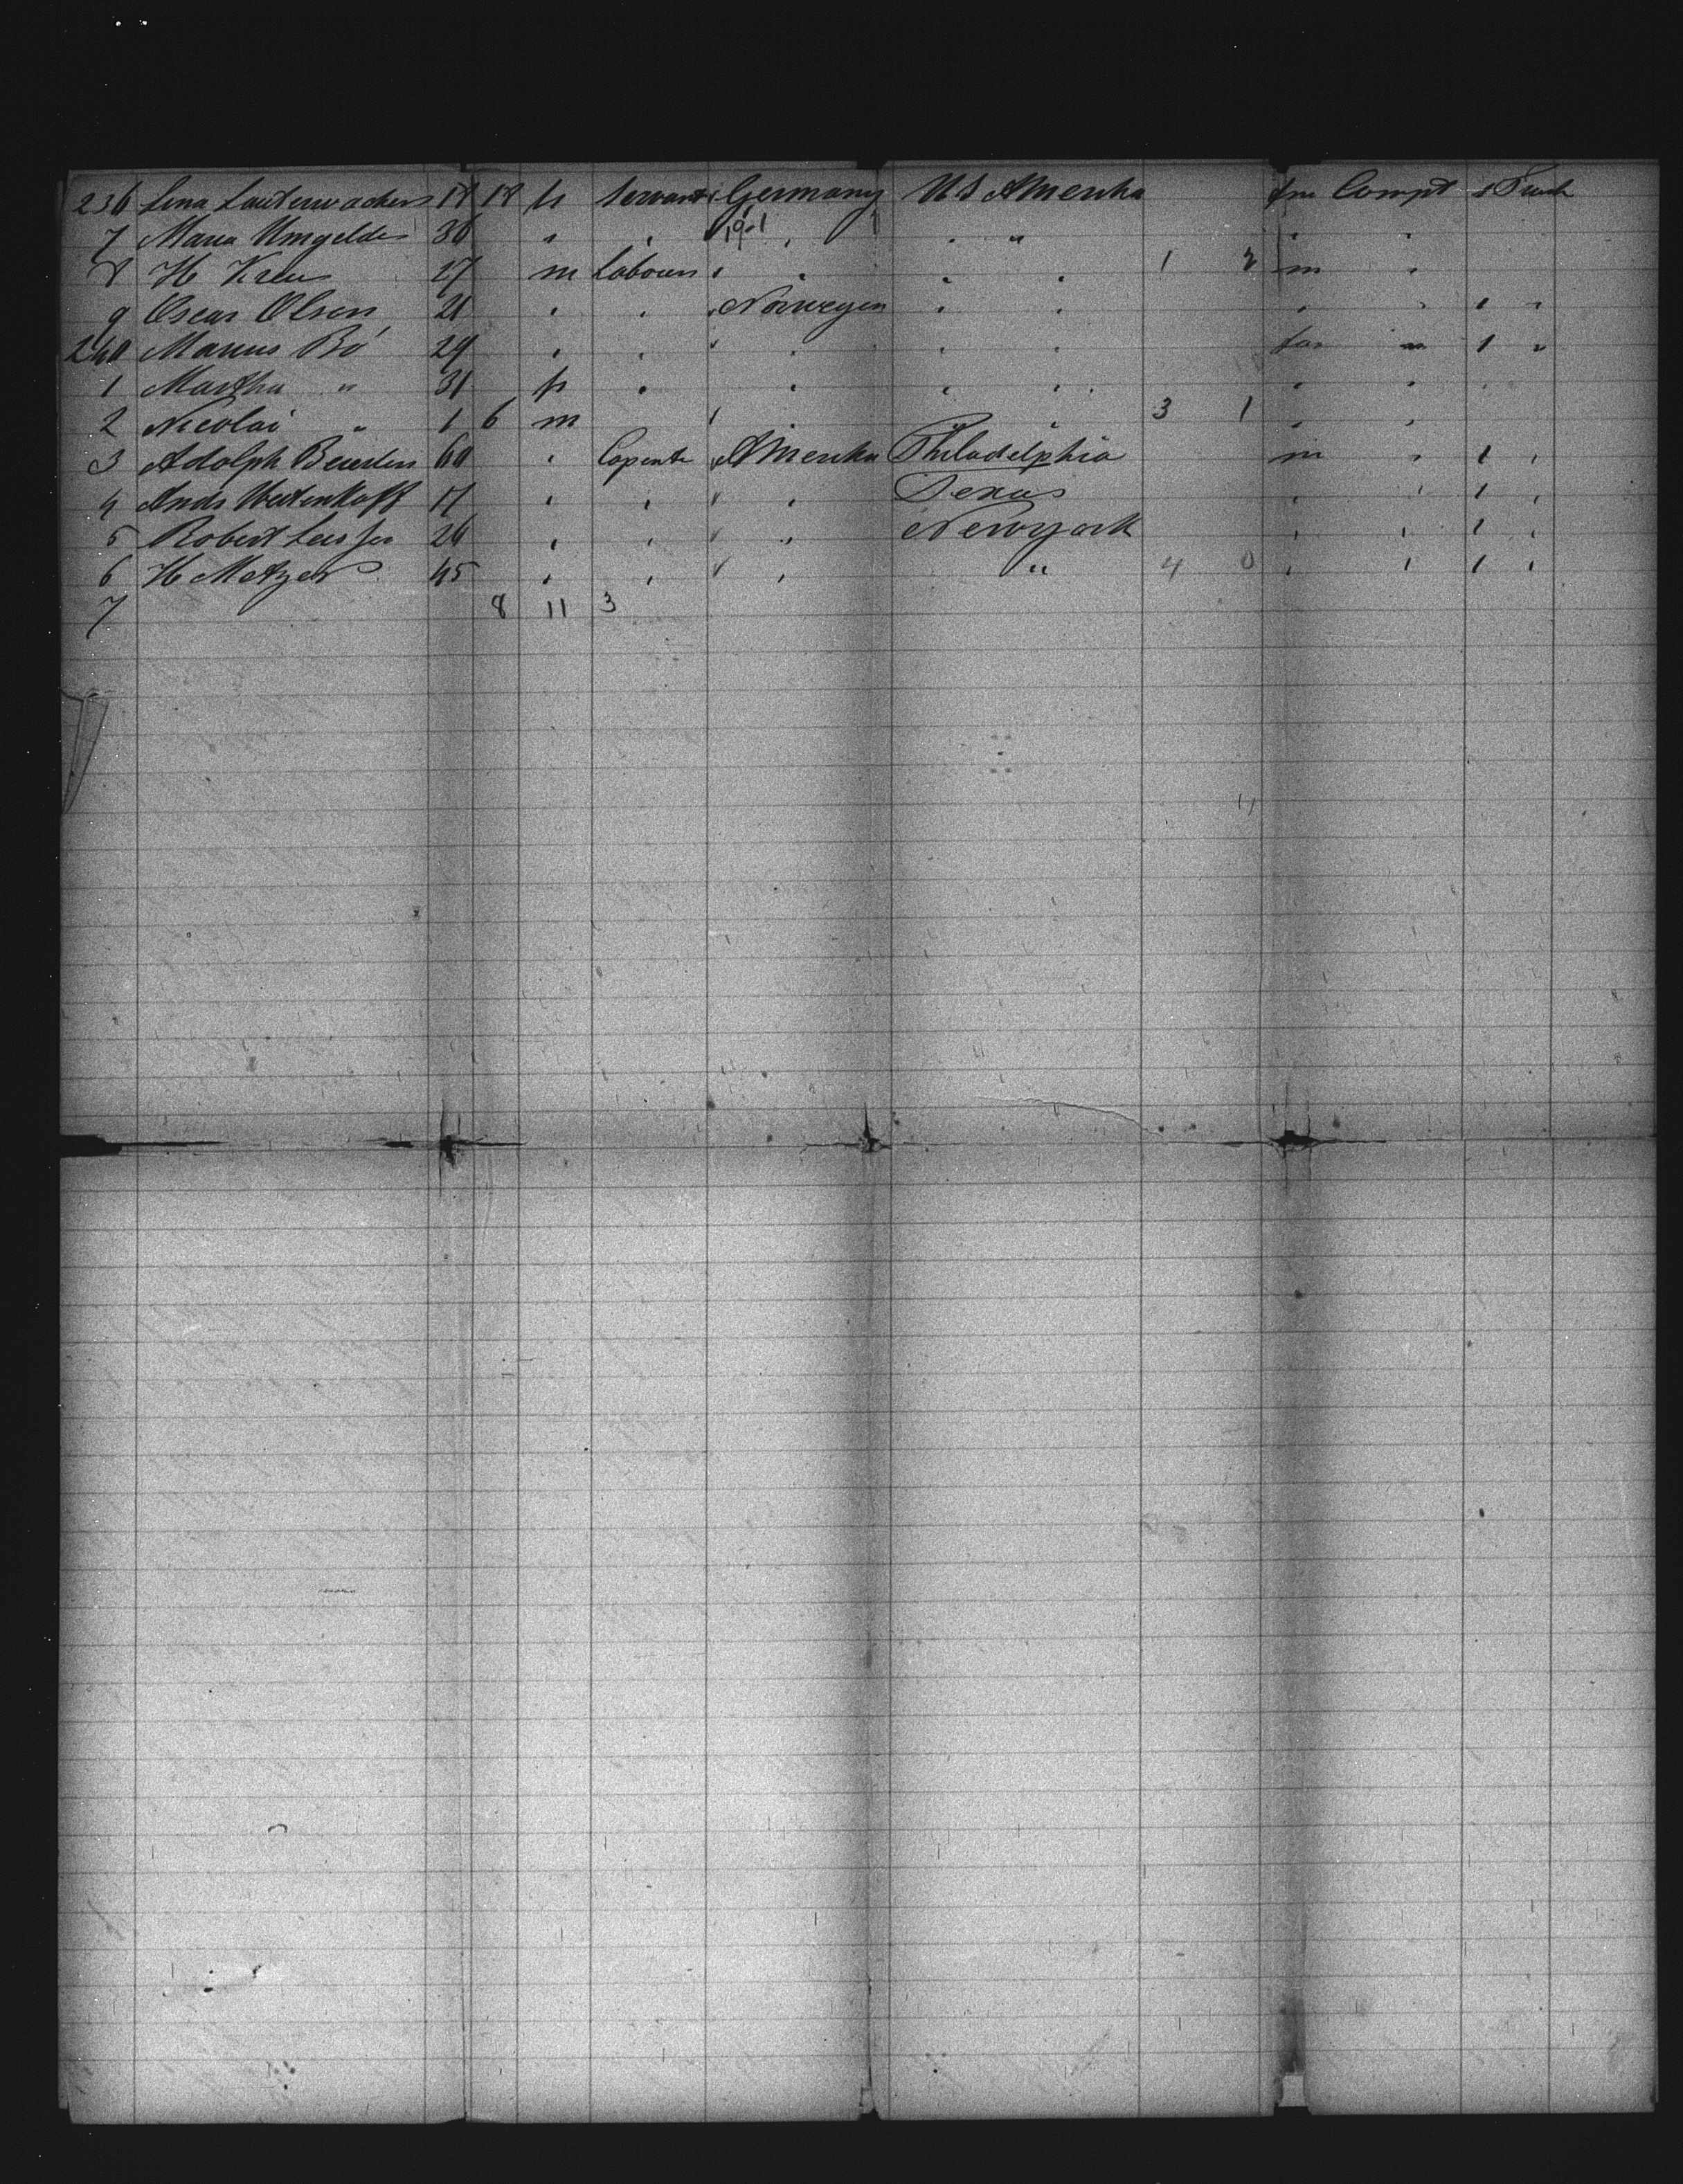 236 Lina Lauterwacher 18 18 fr Servant Germany US Amerika fm Compt 1 Trunk
7 Maria Umgelder 30 " " 19-1 " " " " "
8 H Kreu 27 m Labourer " " " " 1 2 m "
9 Oscar Olsen 21 " " Norwegen " " " " 1 "
240 Marius Bö 29 " " " " " " fm " 1 "
1 Martha " 31 fr " " " " " "
2 Nicolai " 1 6 m " " " 3 1 " "
3 Adolph 60 " Capente Amerika Philadelphia m " 1 "
4 17 " " " " Texas " " 1 "
5 Robert 26 " " " " Newyork " " 1 "
6 H Metzer 45 " " " " " 4 0 " " 1 "
7 8 11 3